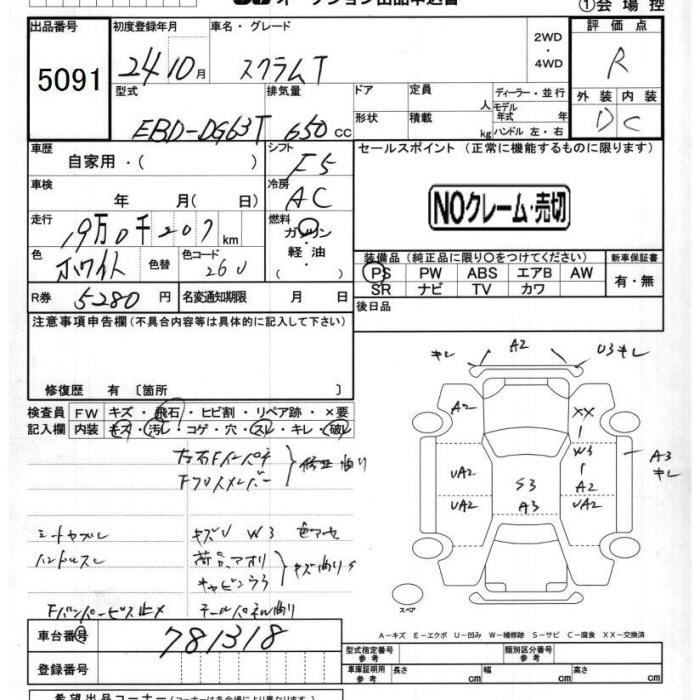 ①会場控
出品番号 初度登録年月 車名・グレード 2WD・4WD 評価点
5091 24 10月 スクラムT R
型式 排気量 ドア 定員 人 ディーラー・並行 外装 内装
EBD-DG63T 650cc 形状 積載 kg モデル年式 年 ハンドル 左・右 D C
車歴 自家用・( ) シフト F5 セールスポイント (正常に機能するものに限ります)
車検 年 月( 日) 冷房 AC
NOクレーム・売切
走行 19万0千207km 燃料 ガソリン・軽油・( )
色 ホワイト 色替 色コード 26U
装備品 (純正品に限り〇をつけてください) 新車保証書
PS PW ABS エアB AW 有・無
SR ナビ TV カワ
R券 5280円 名変通知期限 月 日 後日品
注意事項申告欄(不具合内容等は具体的に記入して下さい)
修復歴 有〔箇所 〕
検査員 FW キズ・飛石・ヒビ割・リペア跡・×要
記入欄 内装 キズ・汚レ・コゲ・穴・スレ・キレ・破レ
キレ A2 U3キレ
A2 XX
W3 A3
キレ
UA2 S3 A2
UA2 A3 UA2
左右Fインパネ
シートヤブレ キズU W3
ハンドルスレ
781318
車台番号
登録番号
スペア
A-キズ E-エクボ U-凹み W-補修跡 S-サビ C-腐食 XX-交換済
型式指定番号 参考 類別区分番号 参考
車庫証明 参考 長さ cm 幅 cm 高さ cm
希望出品コーナー